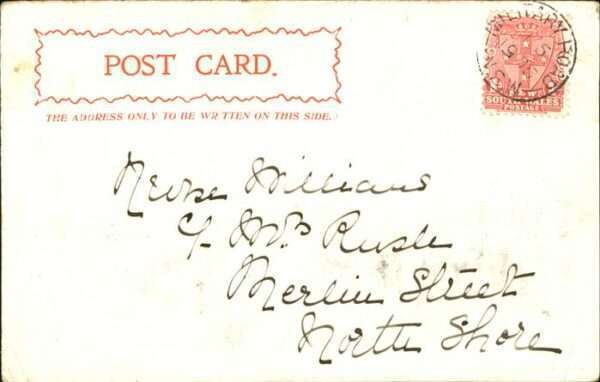 POST CARD.
THE ADDRESS ONLY TO BE WR TTEN ON THIS SIDE.
MILITARY ROAD
N.S.W
5
SOUTH WALES
POSTAGE
Nurse Williams
c/- Mrs Rush
Merlin Street
North Shore